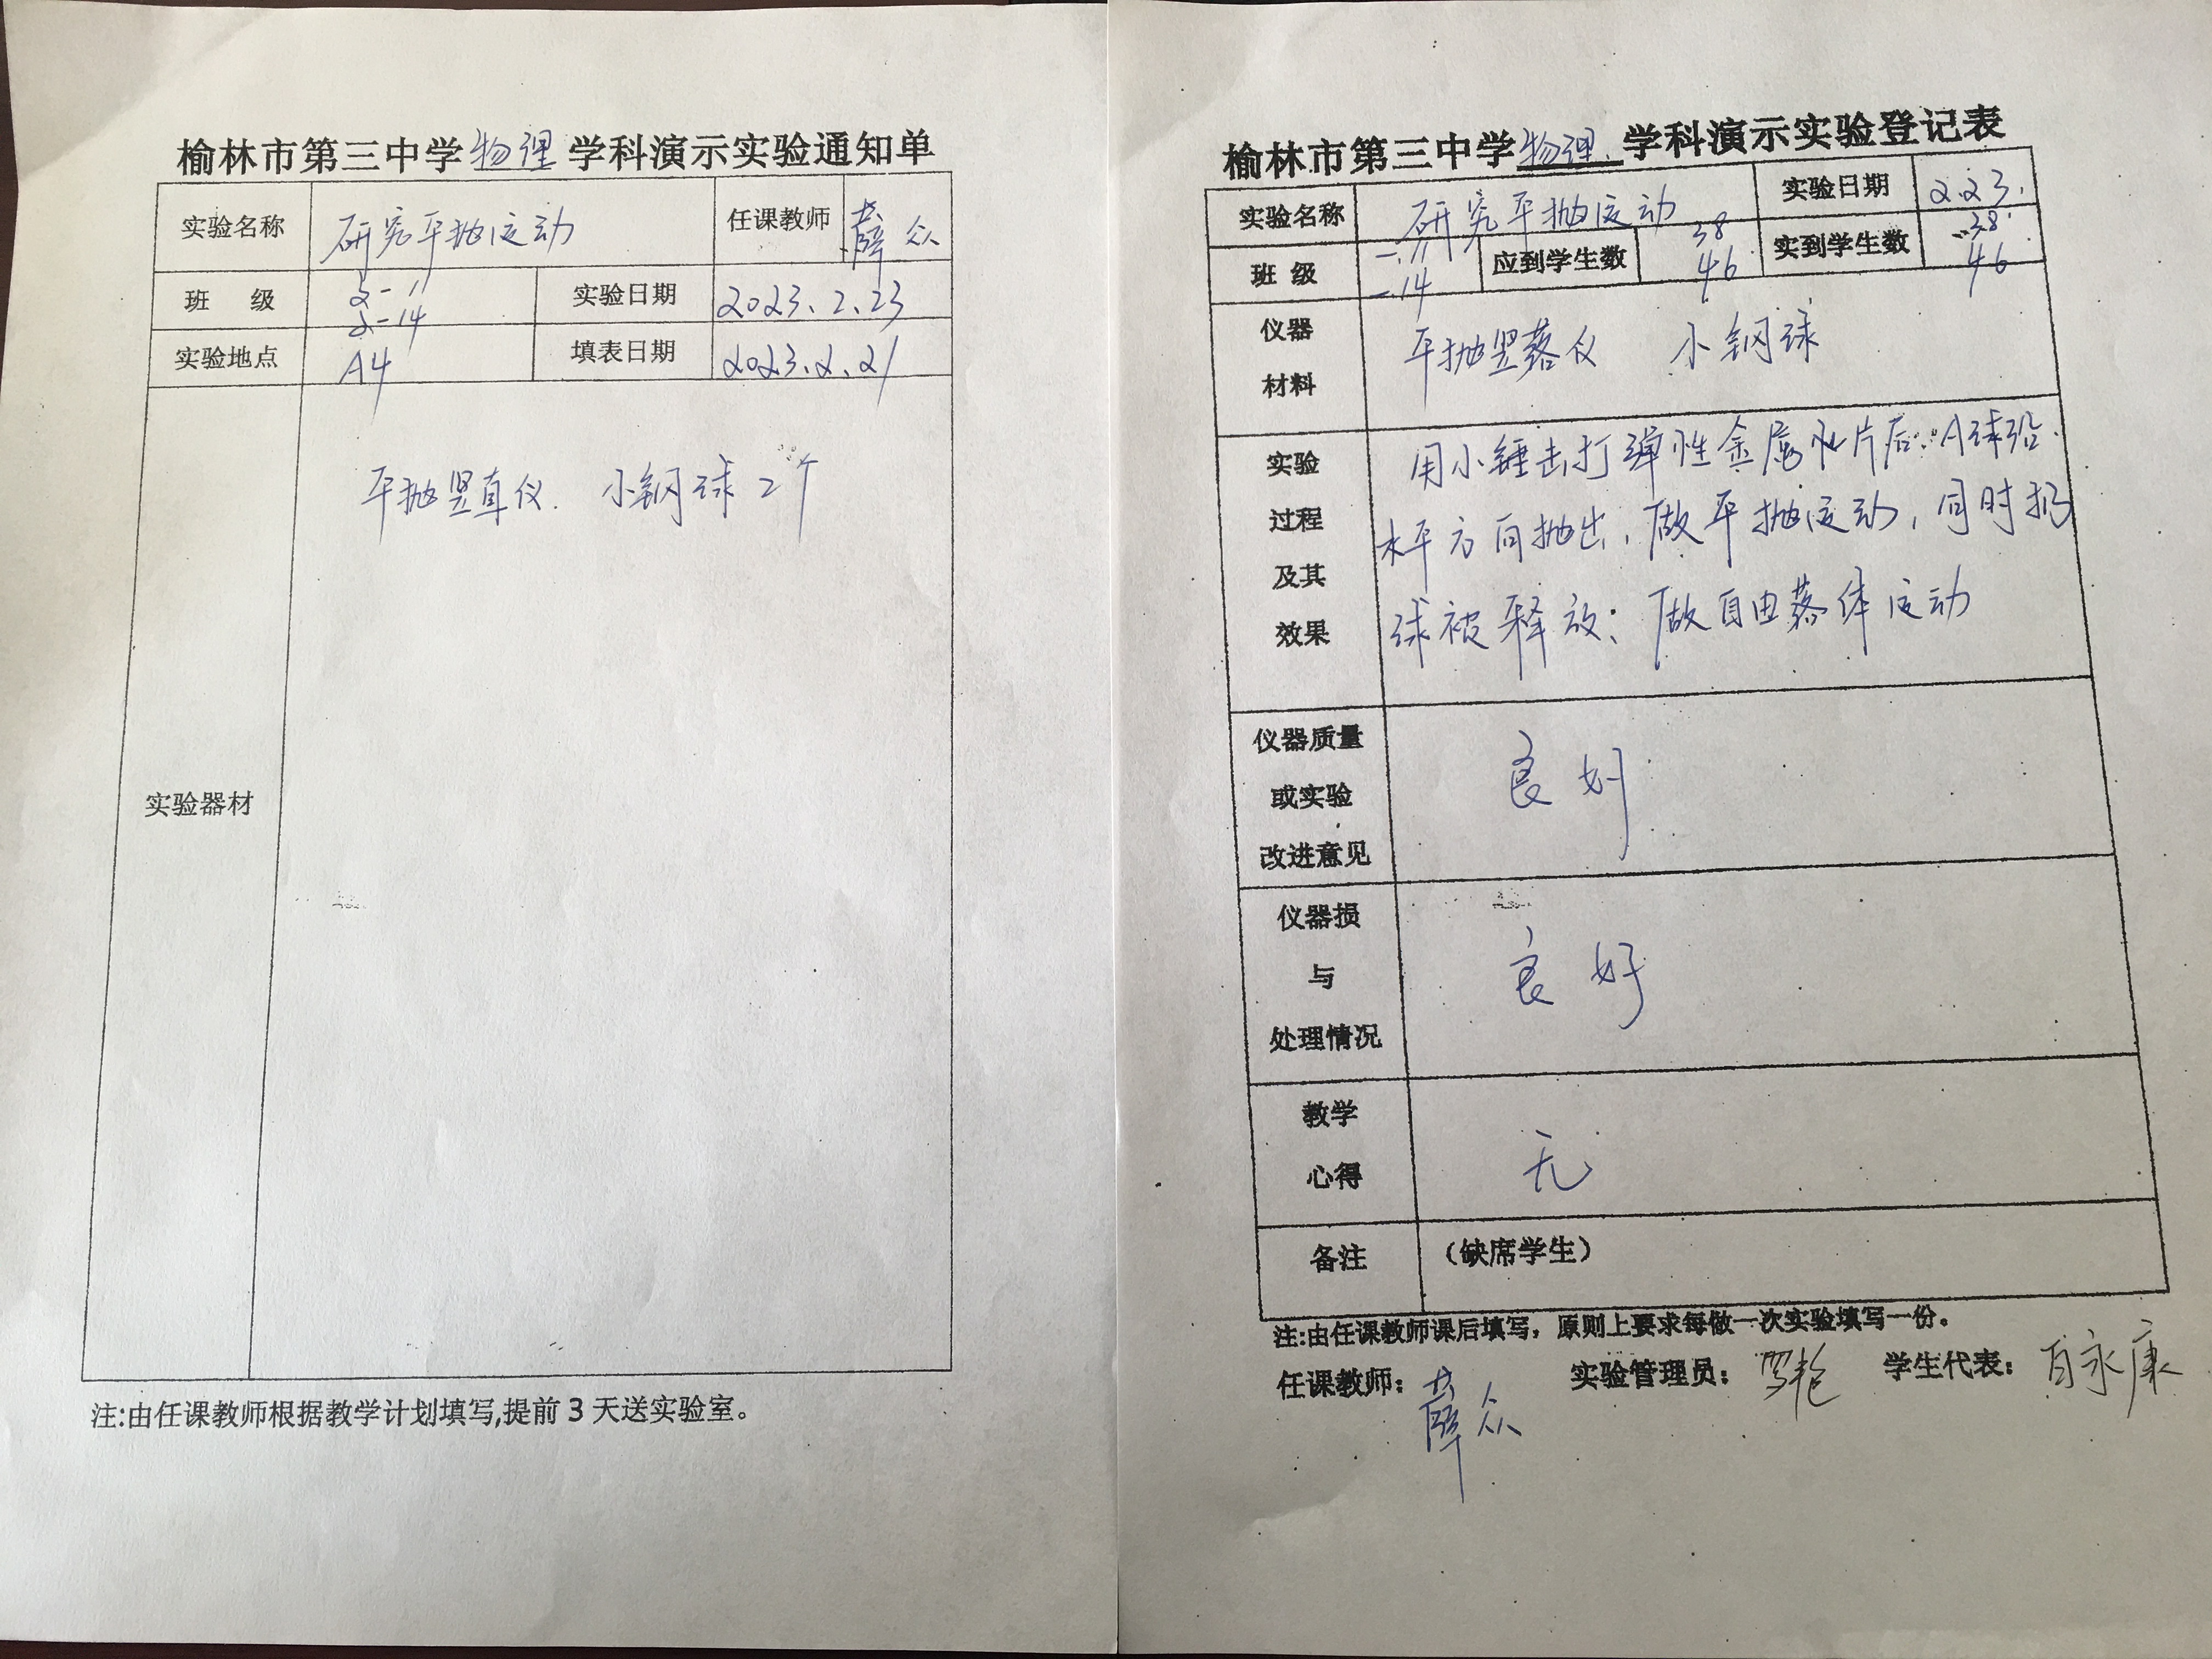 榆林市第三中学物理学科演示实验通知单
实验名称 研究平抛运动 任课教师 薛众
班 级 2-11 2-14 实验日期 2023.2.23
实验地点 A4 填表日期 2023.2.21
实验器材 平抛竖直仪. 小钢球2个
注:由任课教师根据教学计划填写,提前3天送实验室。
榆林市第三中学物理学科演示实验登记表
实验名称 研究平抛运动 实验日期 2.23.
班 级 一.11 一.14 应到学生数 38 46 实到学生数 38 46
仪器
材料
平抛竖落仪 小钢球
实验
过程
及其
效果
用小锤击打弹性金属片后. A球沿
水平方向抛出,做平抛运动,同时
球被释放; 做自由落体运动
仪器质量
或实验
改进意见
良好
仪器损
与
处理情况
良好
教学
心得
无
备注 (缺席学生)
注:由任课教师课后填写,原则上要求每做一次实验填写一份。
任课教师: 薛众 实验管理员: 学生代表: 永康